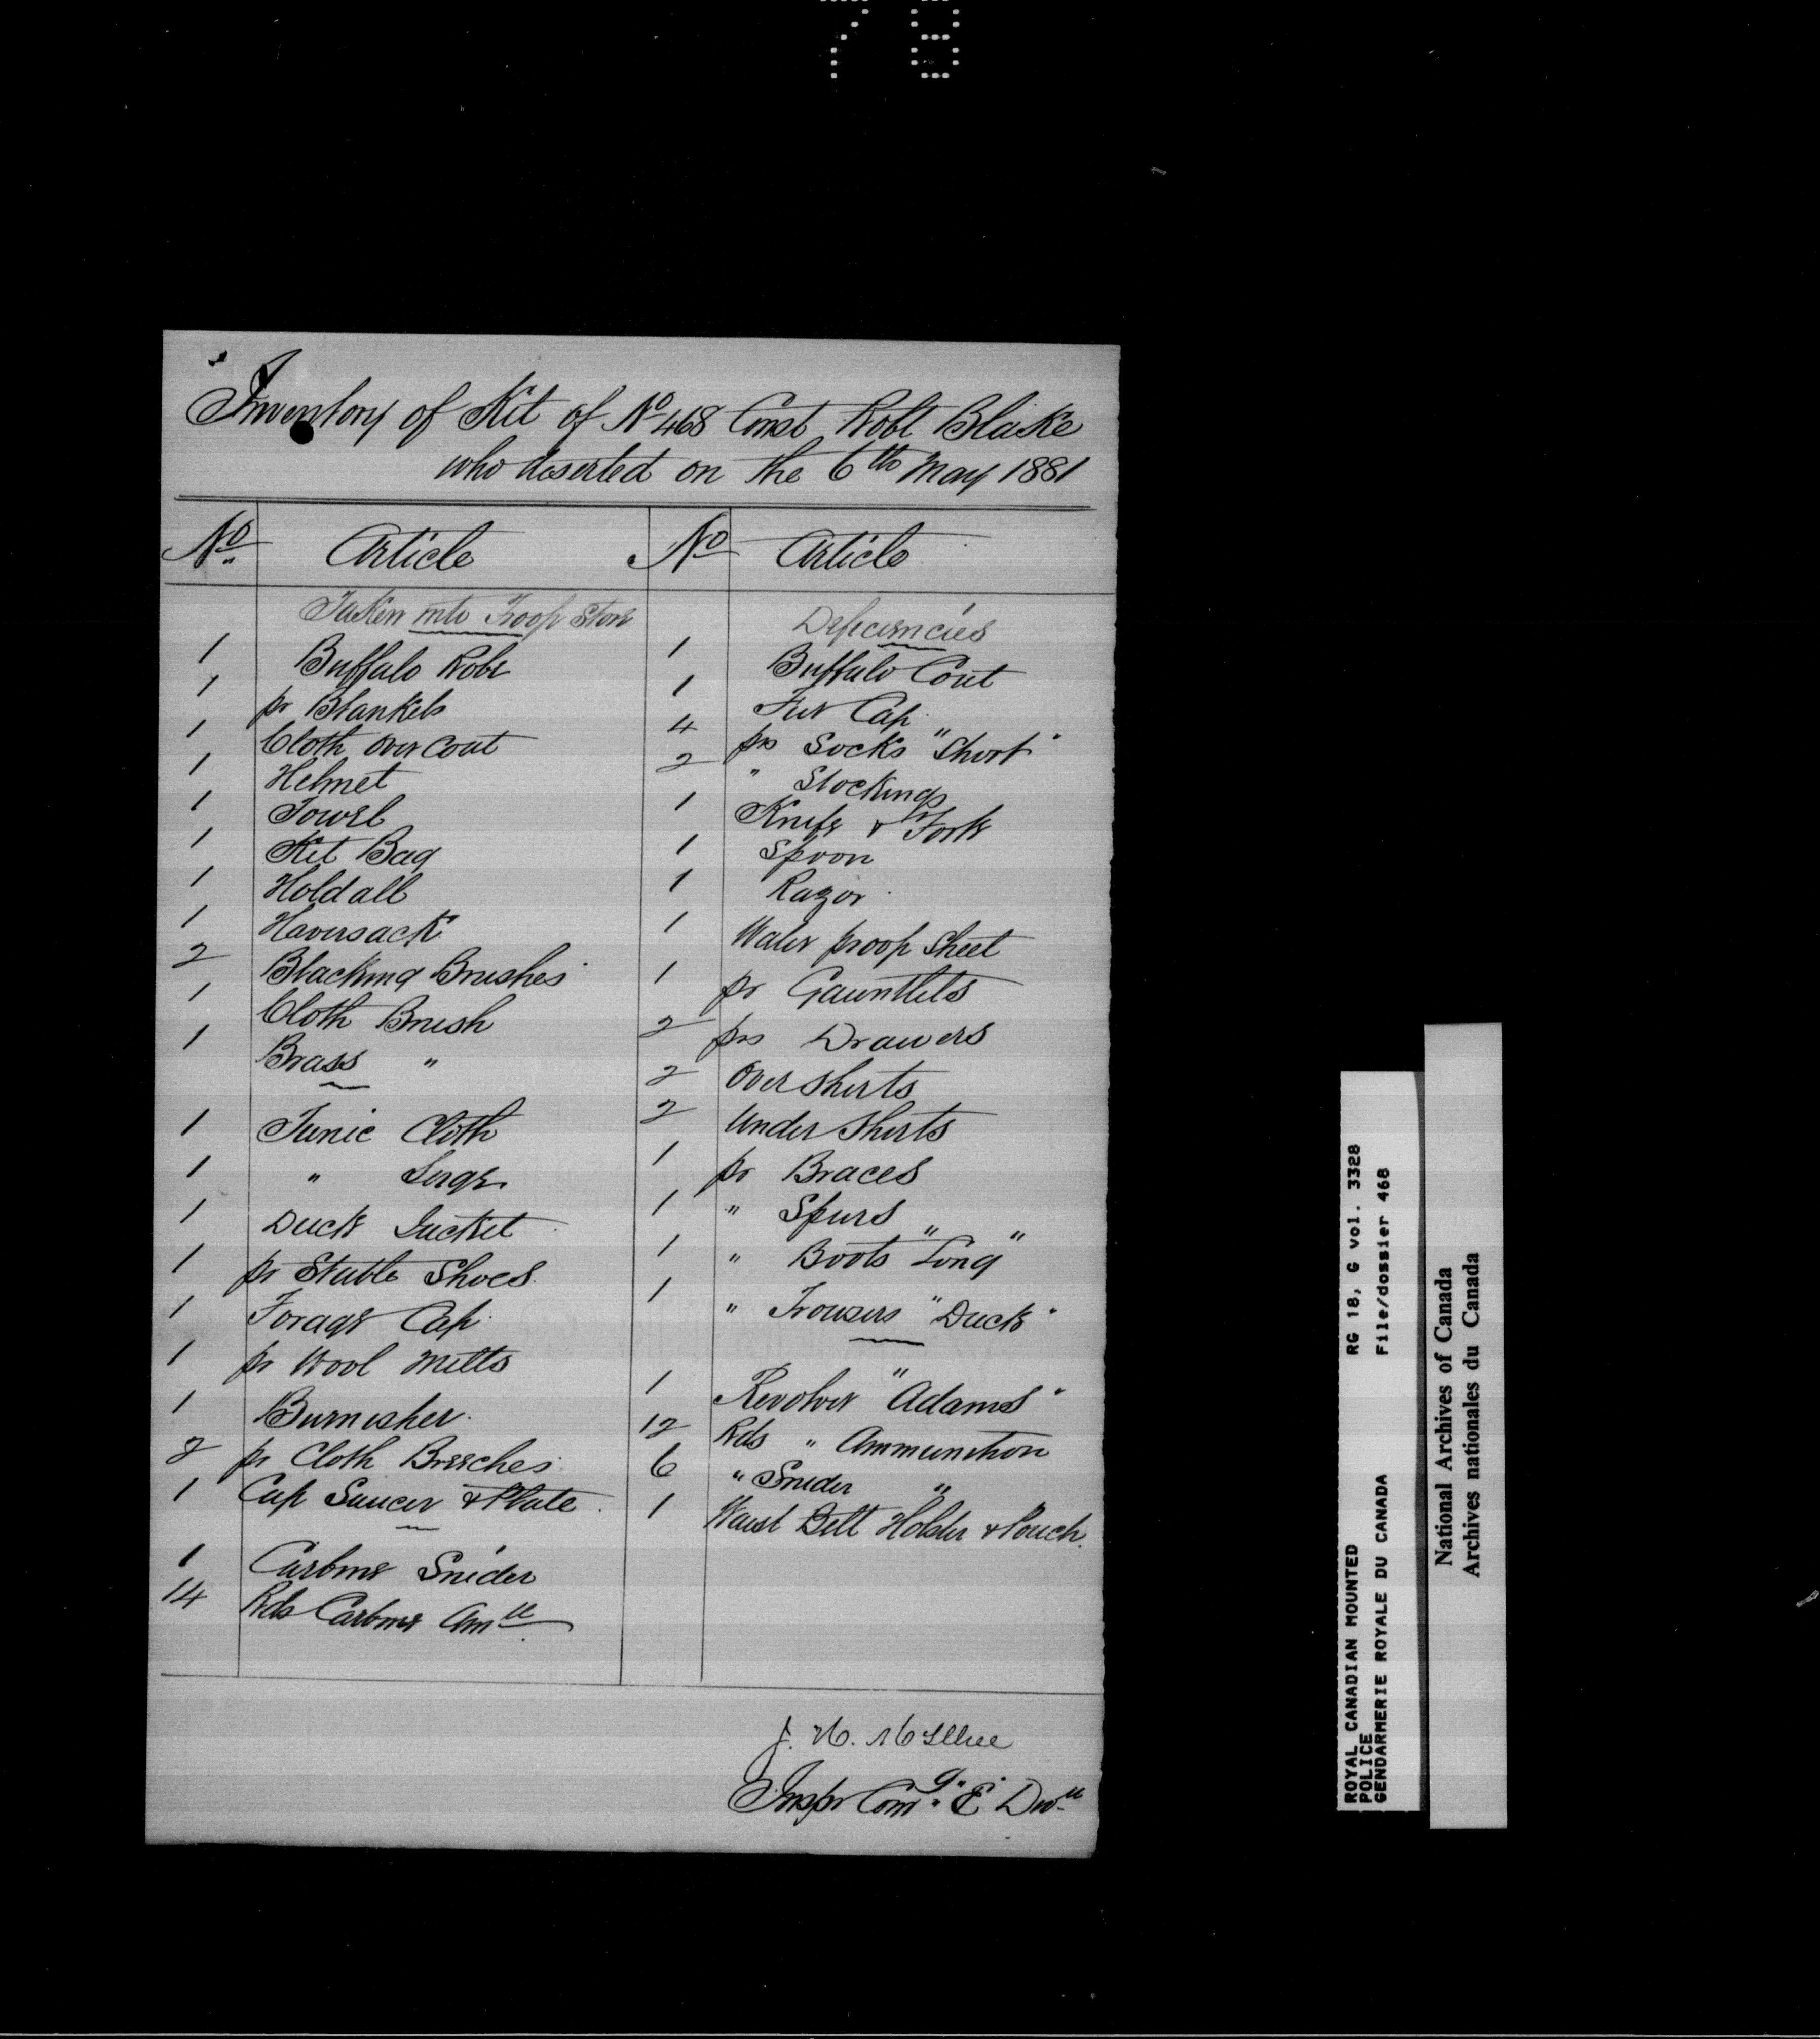 78
Inventory of Kit of No 468 Const Robt Blake
who deserted on the 6th May 1881
No. Article
Taken into Troop Store
1 Buffalo Robe
1 pr Blankets
1 Cloth over Coat
1 Helmet
1 Towel
1 Kit Bag
1 Holdall
1 Haversack
2 Blacking Brushes
1 Cloth Brush
1 Brass "
1 Tunic Cloth
1 " Serge
1 Duck Jacket
1 pr Stable Shoes
1 Forage Cap
1 pr Wool Mitts
1 Burnisher
2 pr Cloth Breeches
1 Cup Saucer & Plate
1 Carbine Snider
14 Rds Carbine Amn
No Article
Deficiencies
1 Buffalo Coat
1 Fur Cap
4 prs Socks "Short"
2 " Stockings
1 Knife & Fork
1 Spoon
1 Razor
1 Water proof Sheet
1 pr Gauntlets
2 prs Drawers
2 Over Shirts
2 Under Shirts
1 pr Braces
1 " Spurs
1 " Boots "Long"
1 " Trousers "Duck"
1 Revolver "Adams"
12 Rds " Ammunition
6 " Snider "
1 Waist Belt Holder & Pouch.
J. H. McIllree
Inspr Comg "E" Divn
ROYAL CANADIAN MOUNTED RG 18, G vol. 3328
POLICE
GENDARMERIE ROYALE DU CANADA File/dossier 468
National Archives of Canada
Archives nationales du Canada